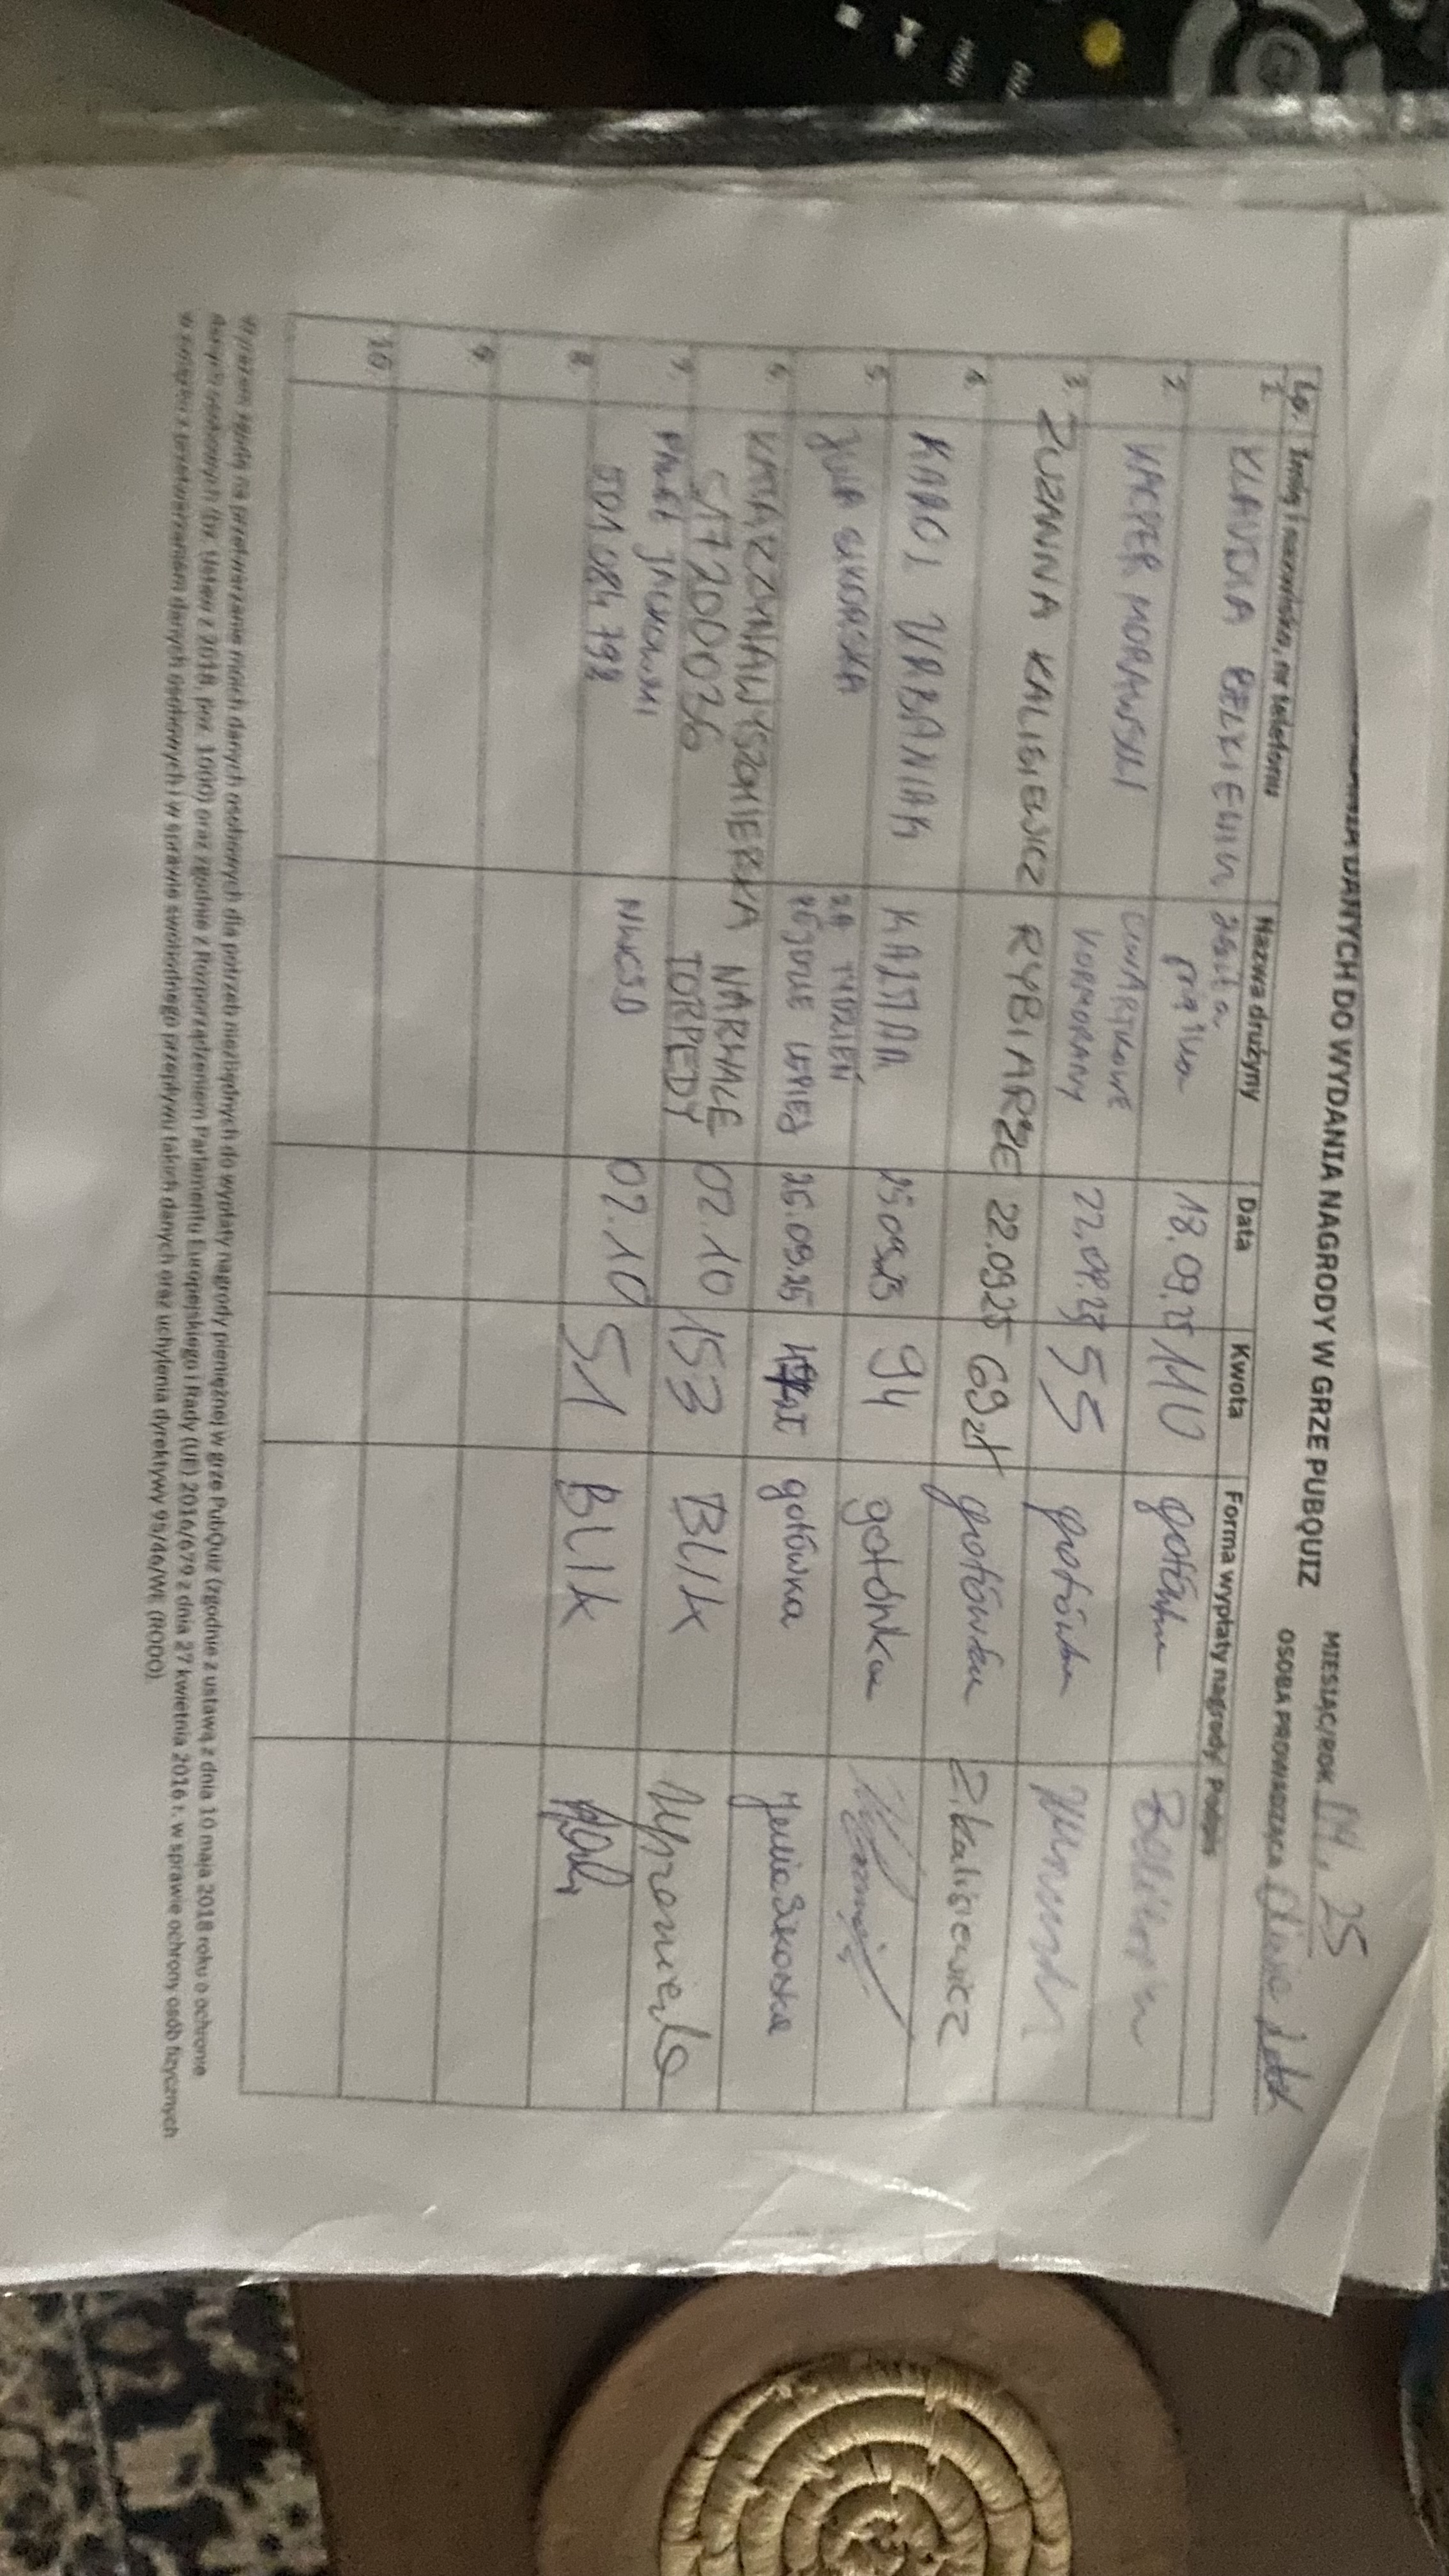 DANYCH DO WYDANIA NAGRODY W GRZE PUBQUIZ
MIESIĄC/ROK 09.25
OSOBA PROWADZĄCA
Lp. Imię i nazwisko, nr telefonu Nazwa drużyny Data Kwota Forma wypłaty nagrody Podpis
1. KLAUDIA 18.09.25 110 gotówka
2. KACPER MORAWSKI CZWARTKOWE KORMORANY 22.09.25 55 gotówka
3. ZUZANNA KALISIEWICZ RYBIARZE 22.0925 69zł gotówka Z.Kalisiewicz
4. KAROL URBANIAK KAJMAN 25.09.25 94 gotówka
5. JULIA SIKORSKA ZA TYDZIEŃ PÓJDZIE LEPIEJ 25.09.25 gotówka Julia Sikorska
6. KATARZYNA WYSZOMIERSKA NARWALE TORPEDY 02.10 153 BLIK
517200036
7. PAWEŁ JACKOWSKI NWCSD 02.10 51 BLIK
501 084 798
8.
9.
10.
Wyrażam zgodę na przetwarzanie moich danych osobowych dla potrzeb niezbędnych do wypłaty nagrody pieniężnej w grze PubQuiz (zgodnie z ustawą z dnia 10 maja 2018 roku o ochronie
danych osobowych (tzn. Ustaw z 2018, poz. 1000) oraz zgodnie z Rozporządzeniem Parlamentu Europejskiego i Rady (UE) 2016/679 z dnia 27 kwietnia 2016 r. w sprawie ochrony osób fizycznych
w związku z przetwarzaniem danych osobowych i w sprawie swobodnego przepływu takich danych oraz uchylenia dyrektywy 95/46/WE (RODO).